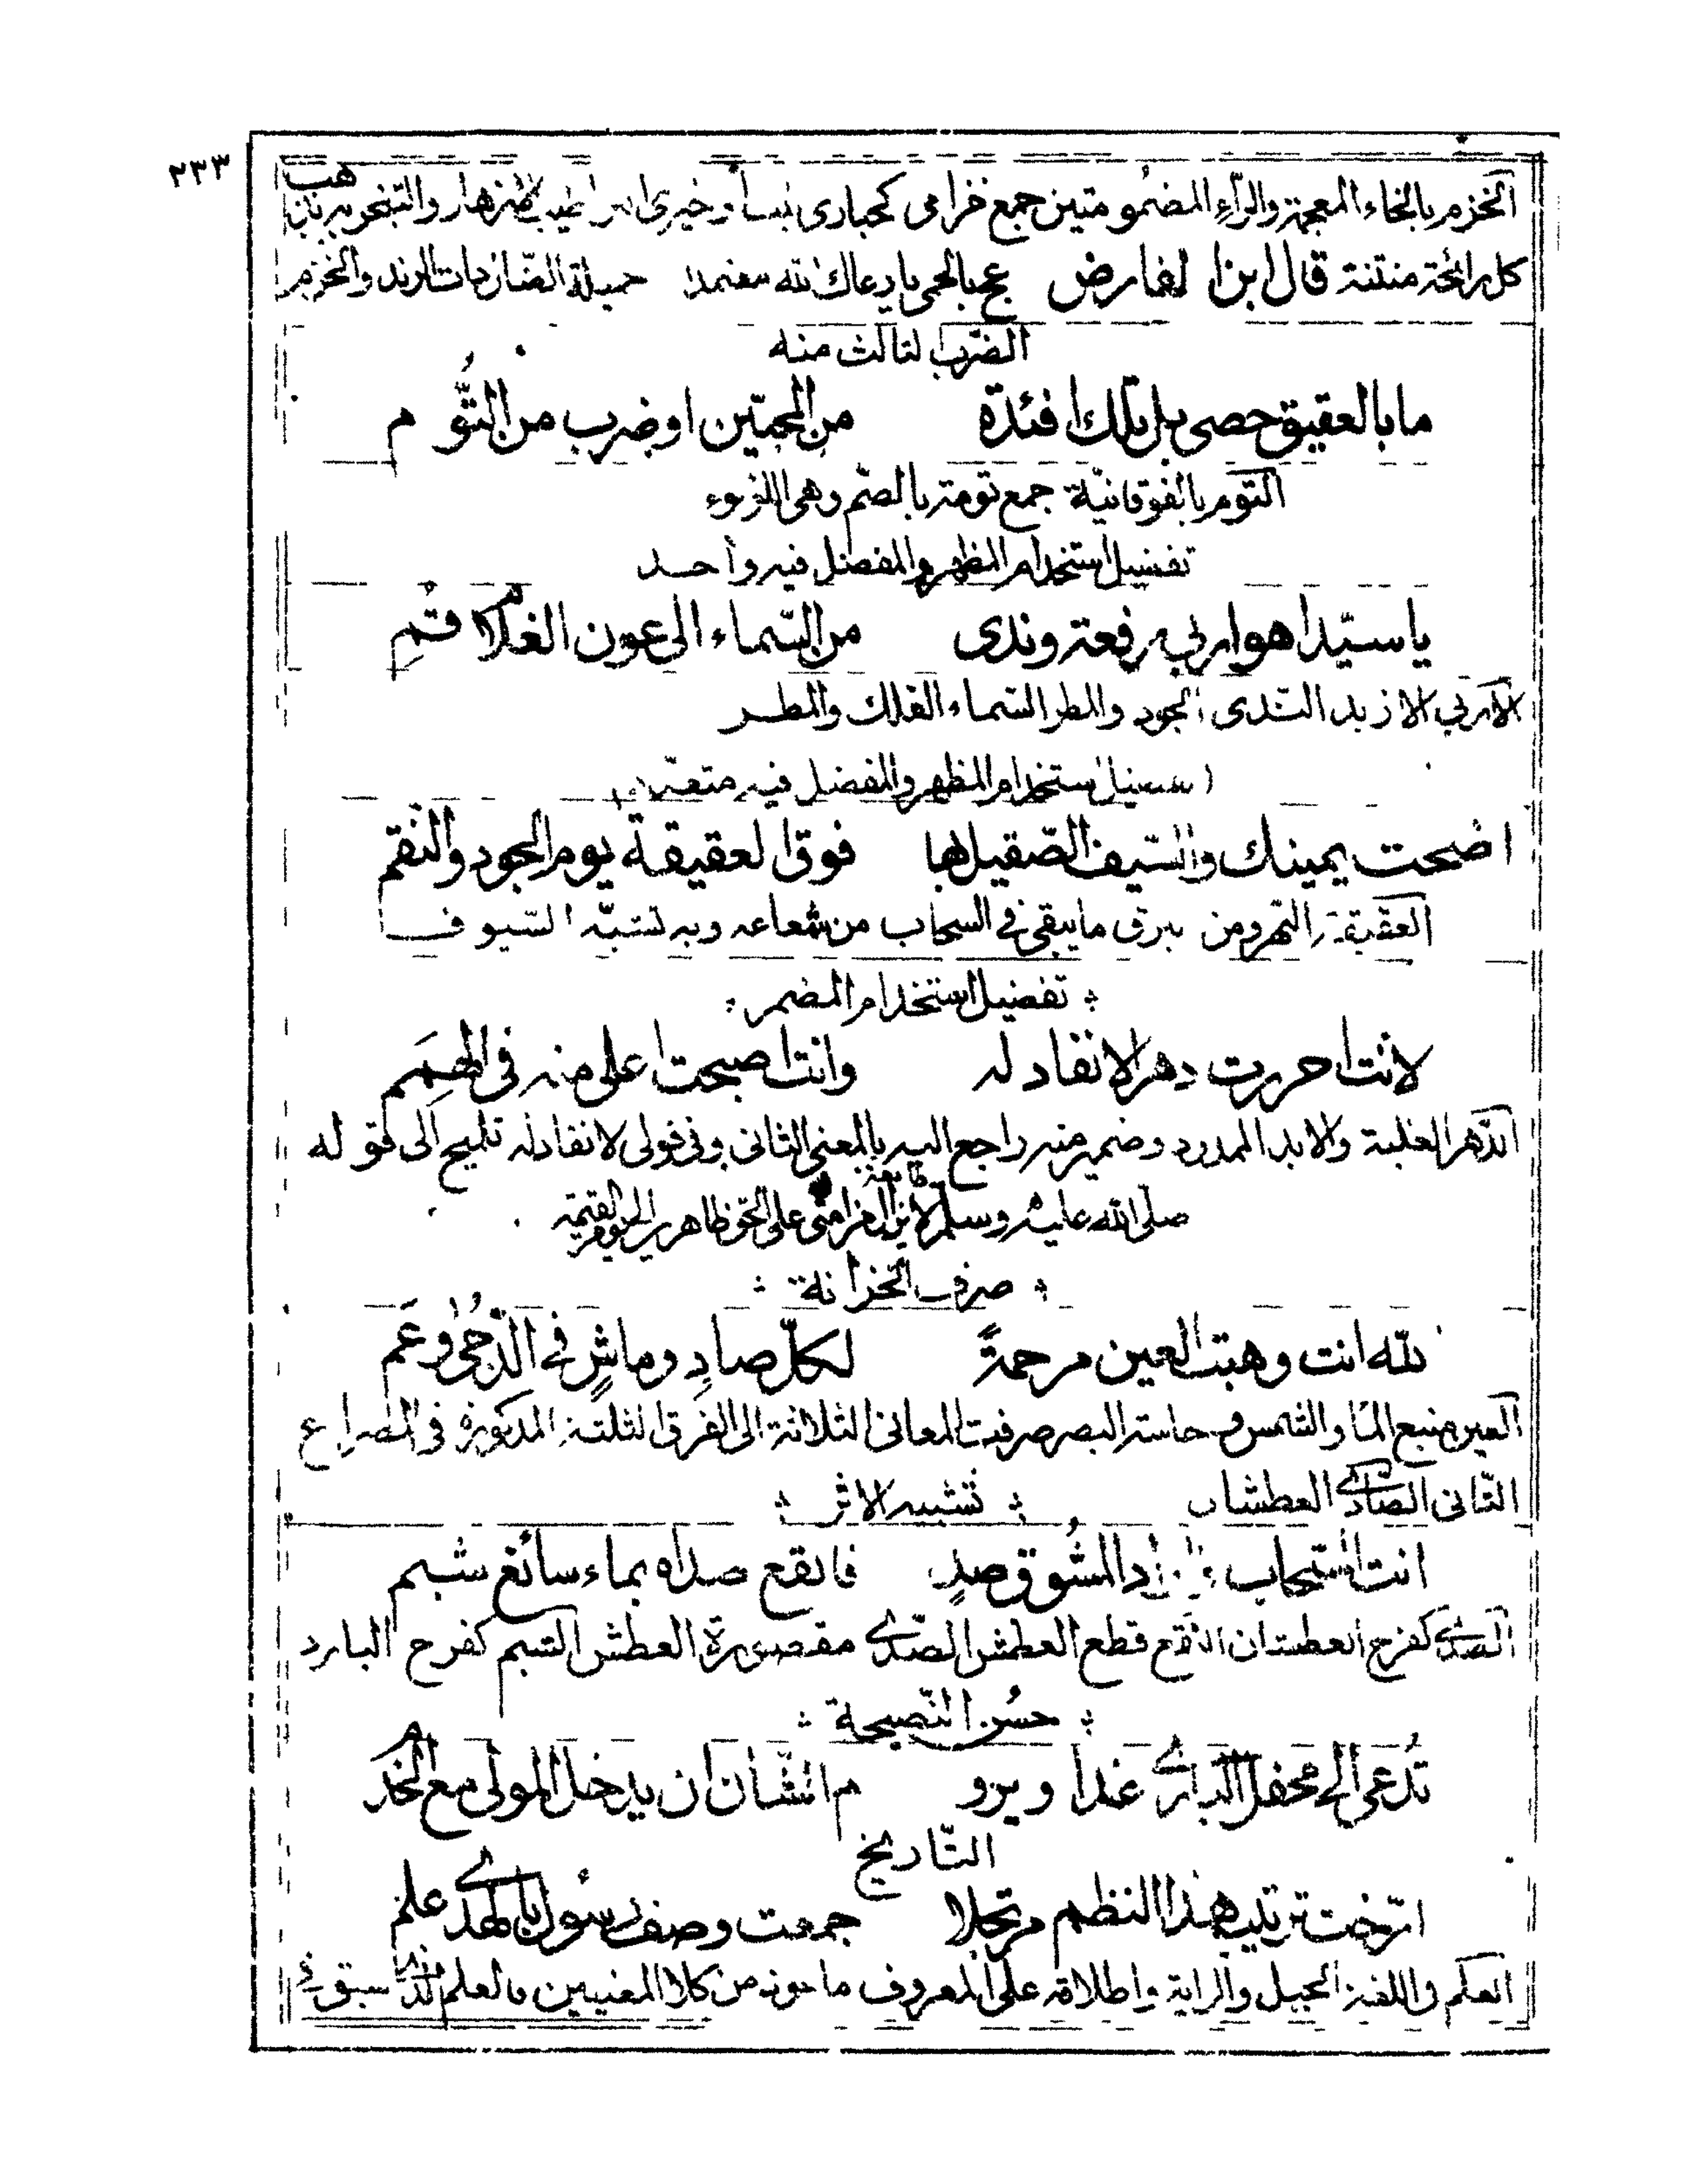 ٢٣٣
الخزم بالخاء المعجمة والزاء المضمومتين جمع خزامى كحبارى نبت او خيرى البر اطيب الازهار والتبخر به يذهب
كل رائحة منتنة قال ابن الفارض عج بالحمى يا رعاك الله معتمدا خميلة الضال ذات الرند والخزم
الضرب الثالث منه
ما بالعقيق حصى بل تلك افئدة من المحبّين او ضرب من التُّوم
التوم بالفوقانيّة جمع تومة بالضم وهى اللؤلوء
تفضيل استخدام المظهر والمفضل فيه واحد
يا سيّدا هو اربى رفعة وندى من السّماء الى عون الغلام قُمِ
الاربي الازيد الندى الجود والمطر السماء الفلك والمطر
استخدام المظهر والمفضل فيه متعدد
اضحت يمينك والسّيف الصّقيل لها فوق العقيقة يوم الجود والنقم
العقيقة النهر ومن البرق ما يبقى في السحاب من شعاعه وبه تشبّه السيوف
تفضيل استخدام المضمر
لانت احررت دهرا لا نفاد له وانت اصبحت اعلى منه فى الهِمَم
الدّهر الغلبة والابد الممدود وضمير منه راجع اليه بالمعنى الثانى وفى قولى لا نفاد له تلميح الى قوله
صلى الله عليه وسلم لا يزال من امتى على الحق ظاهرين الى يوم القيمة
صرف الخزانة
لله انت وهبت العين مرحمةً لكلّ صادٍ وماشٍ في الدُّجى وعَم
العين منبع الماء والشمس وحاسة البصر صرفت المعانى الثلاثة الى الفرق الثلثة المذكورة فى المصراع
الثّانى الصّادى العطشان
تشبيه الاثر
انت السّحاب المشُوق صدٍ فانقع صداه بماء سائغ شبم
الصدى كفرح العطشان النقع قطع العطش الصّدى مقصورة العطش الشبم كفرح البارد
حسُن النّصيحة
تُدعى الى محفل البارى غدا ويرو م الشّان ان يدخل المولى مع الخدم
التّاريخ
ارّخت ترتيب هذا النظم مرتجلا جمعت وصف رسُول بالهدى علم
العلم فى اللغة الجبل والراية واطلاقه على المعروف ماخوذ من كلا المعنيين والعلم سبق